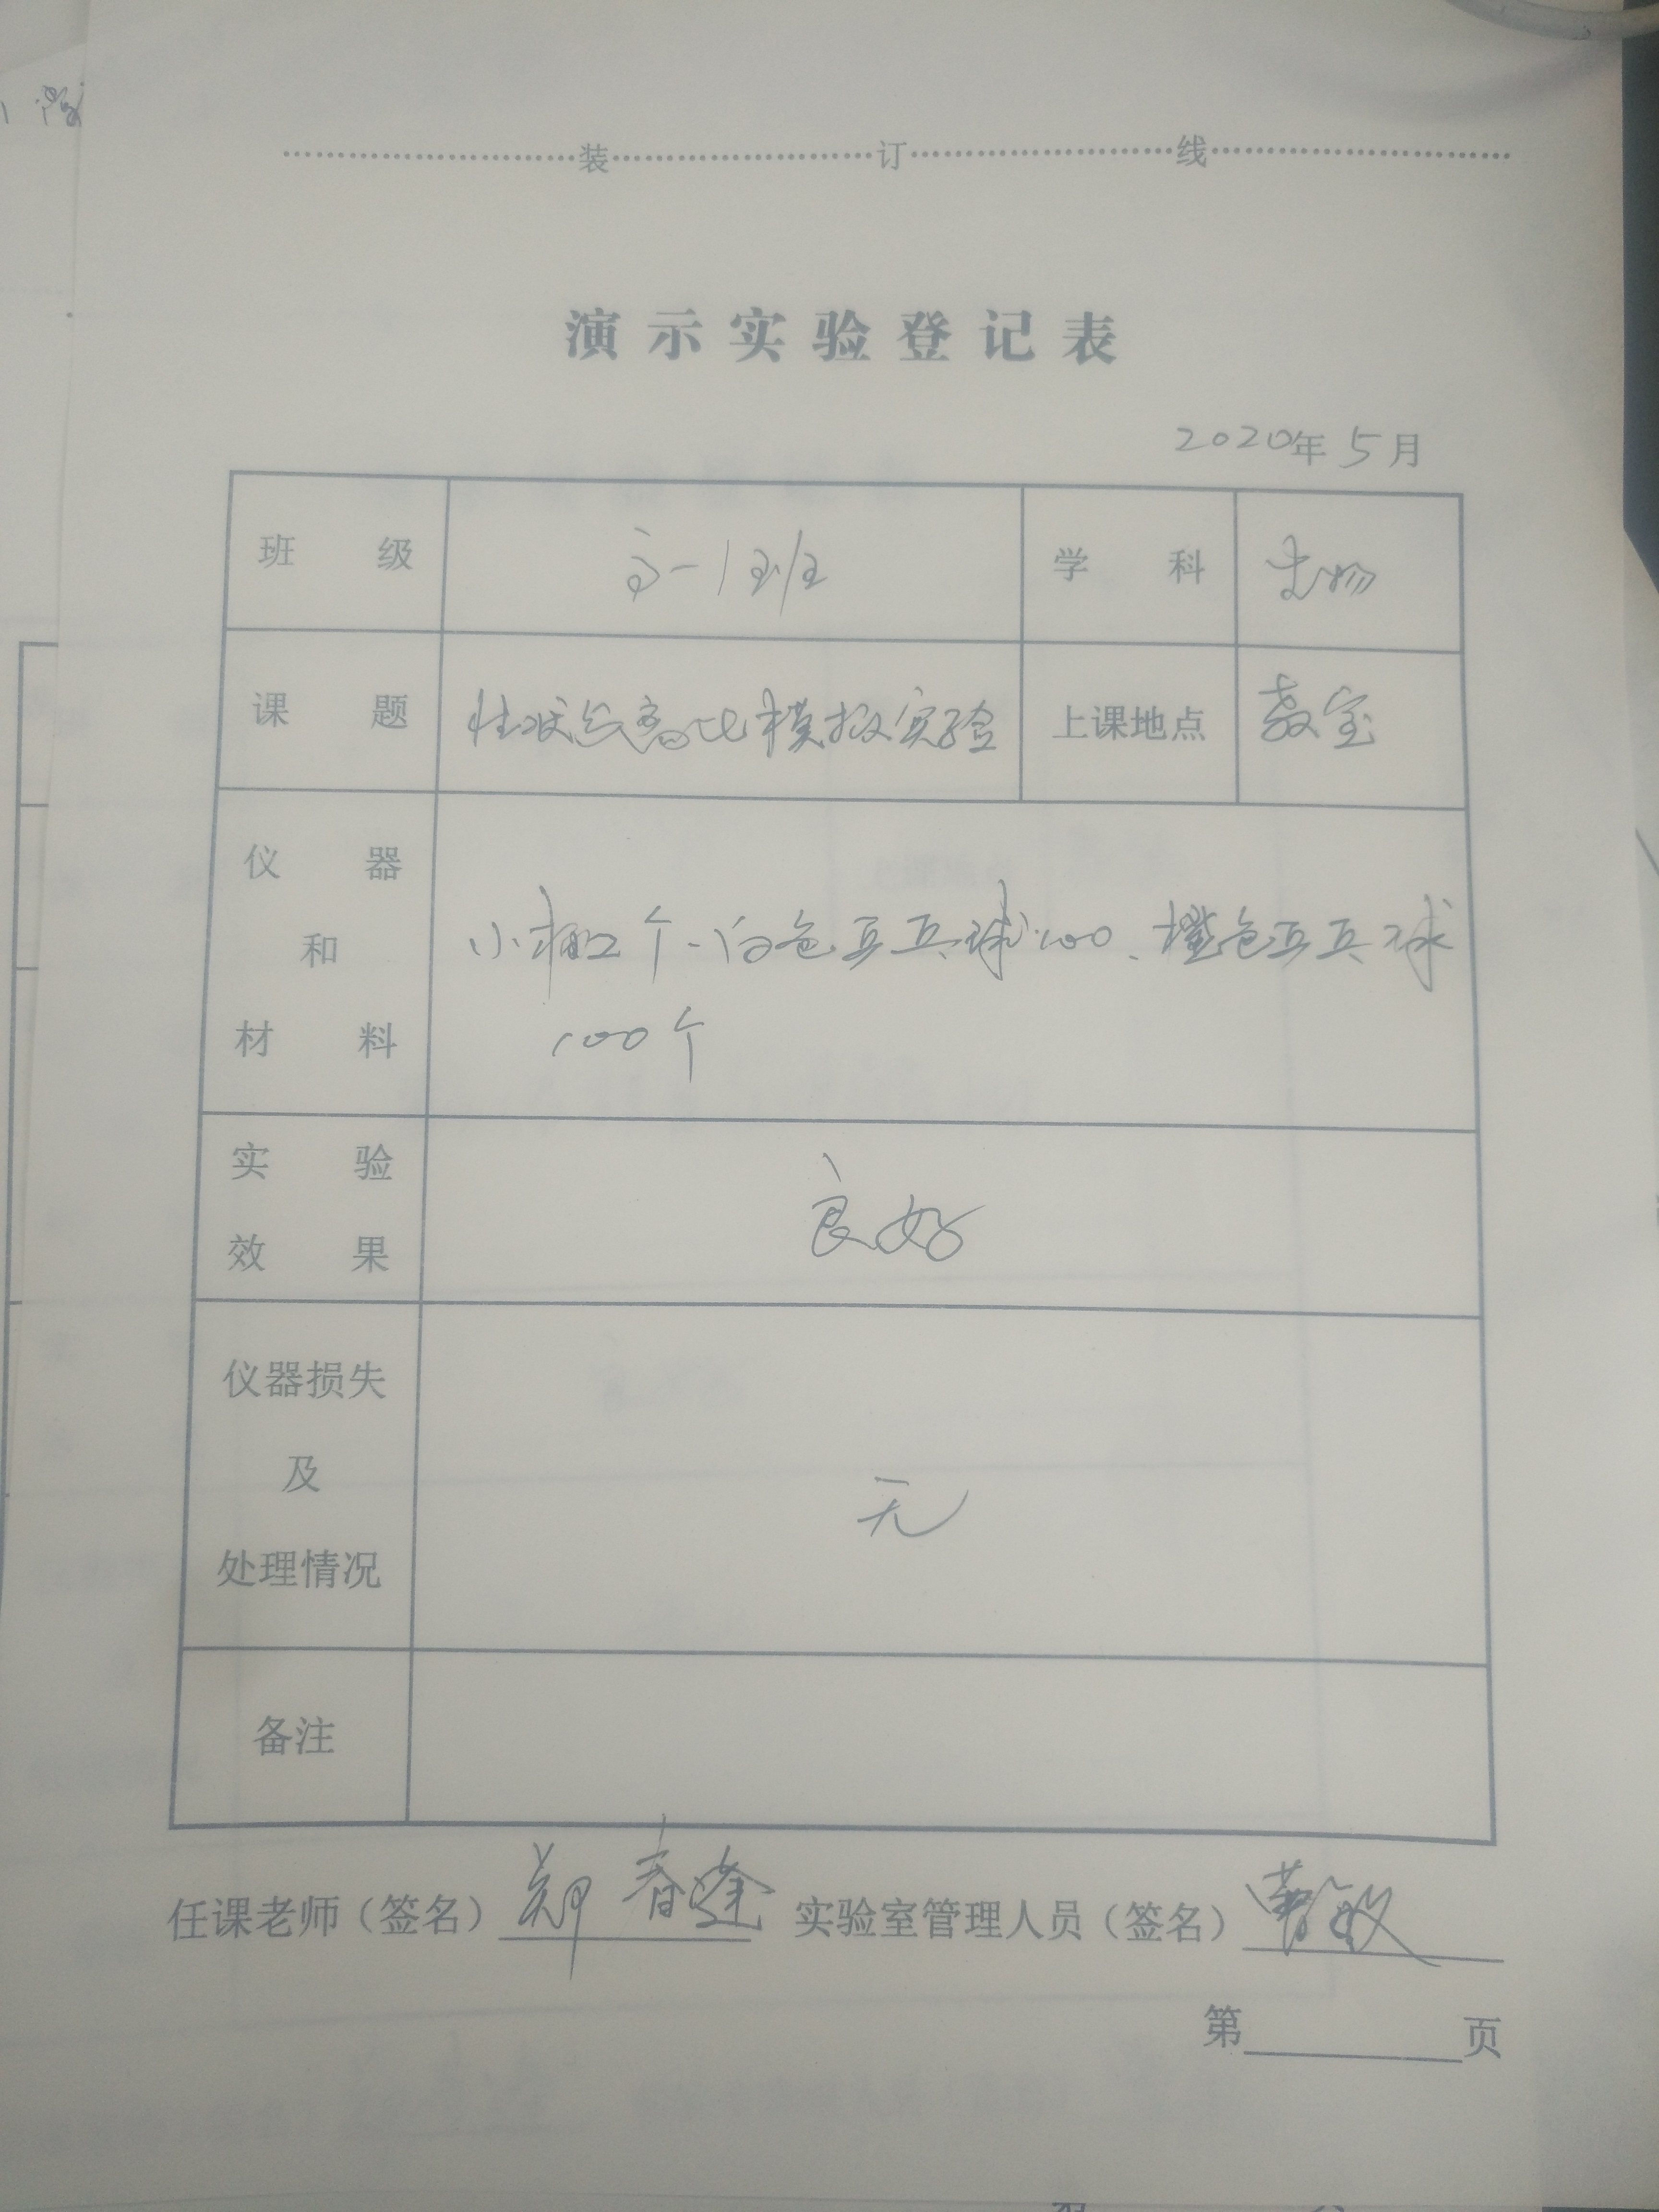 装 订 线
演示实验登记表
2020年 5月
班 级 高一1班 学 科 生物
课 题 性状分离比模拟实验 上课地点 教室
仪 器
和
材 料
小桶2个、白色乒乓球100、橙色乒乓球
100个
实 验
效 果
良好
仪器损失
及
处理情况
无
备注
任课老师（签名）郑春逢 实验室管理人员（签名）
第 页